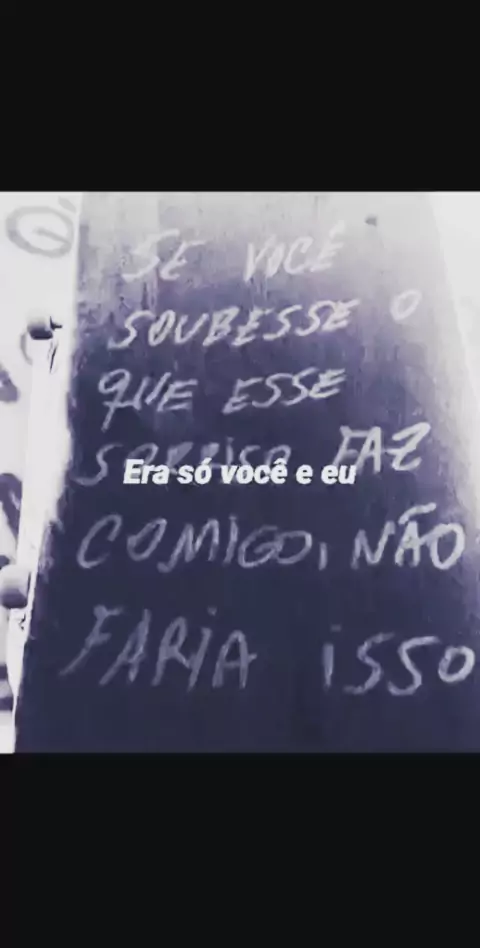 SE VOCÊ
SOUBESSE O
QUE ESSE
SORRISO FAZ
Era só você e eu
COMIGO, NÃO
FARIA ISSO